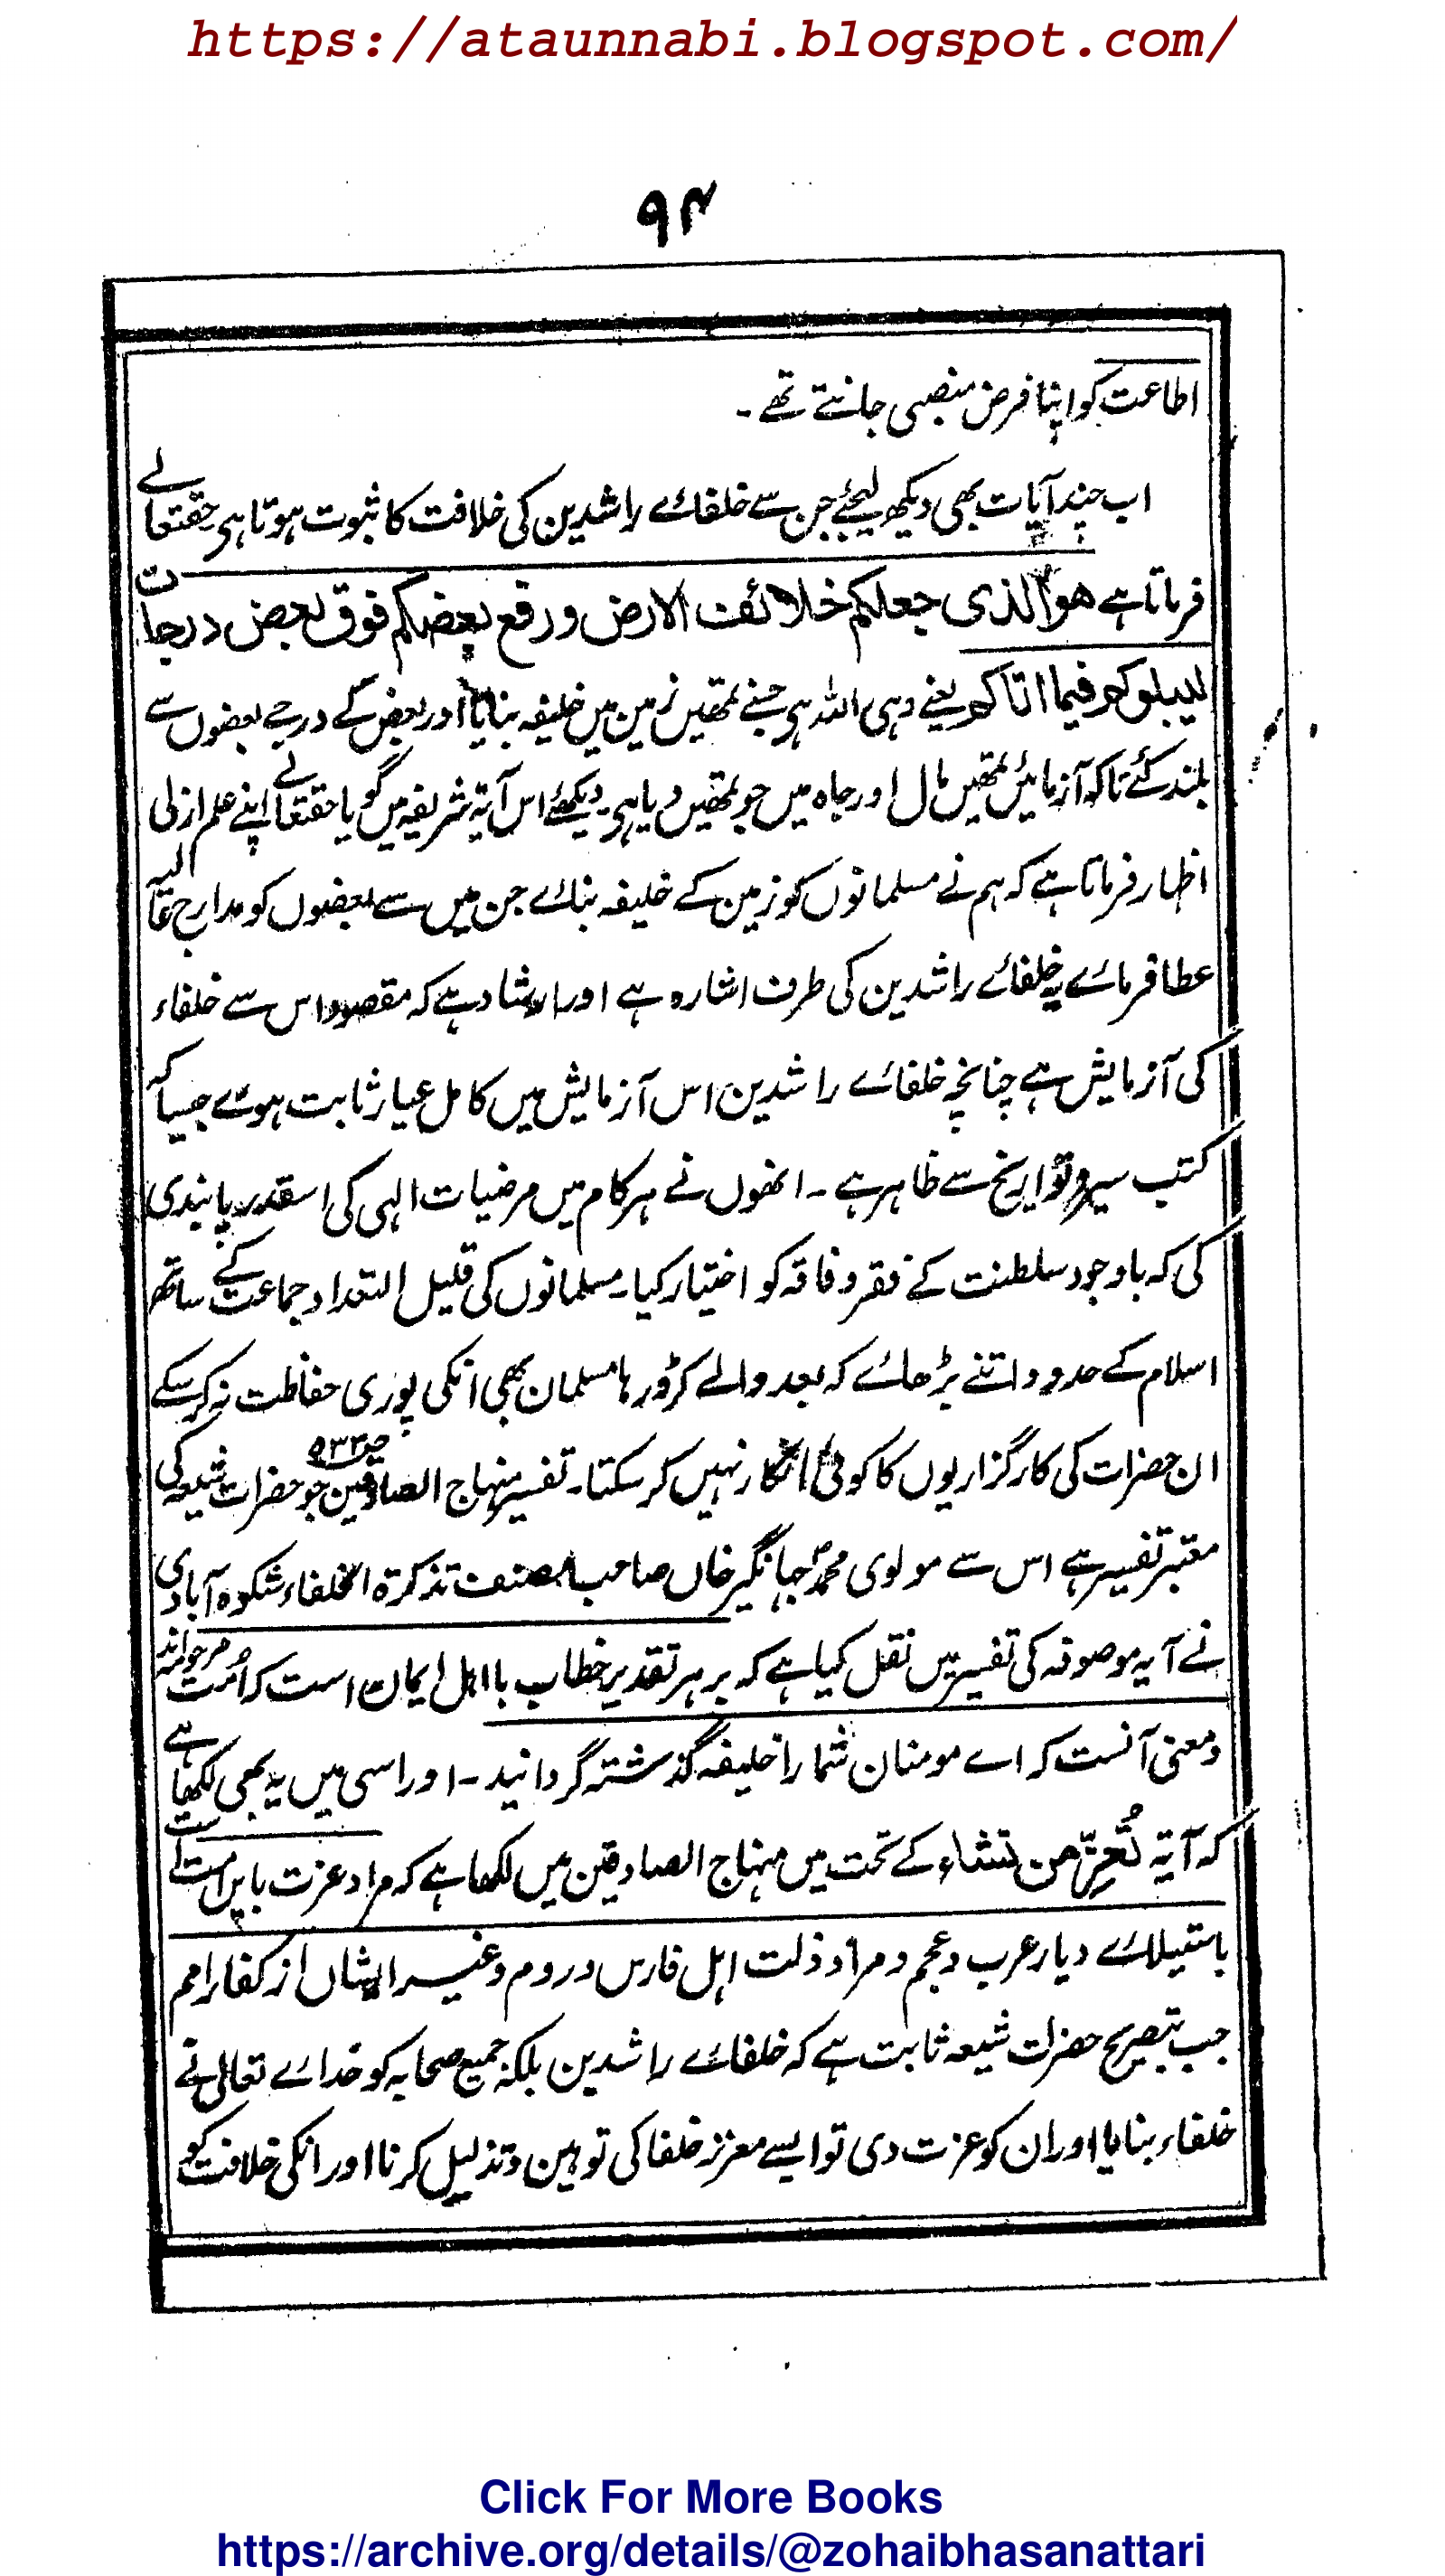 https://ataunnabi.blogspot.com/
۹۴
اطاعت کو اپنا فرض منصبی جانتے تھے ۔
اب چند آیات بھی دیکھ لیجئے جن سے خلفائے راشدین کی خلافت کا ثبوت ہوتا ہی حقتعالے
فرماتا ہے هو الذی جعلکم خلائف الارض ورفع بعضکم فوق بعض درجات
لیبلوکم فیما اتاکم یعنے وہی اللہ ہی جسنے تمھیں زمین میں خلیفہ بنایا اور بعض کے درجے بعضوں سے
بلند کئے تاکہ آزمائیں تمھیں مال اور جاہ میں جو تمھیں دیا ہی۔ دیکھئے اس آیۃ شریفہ میں گویا حقتعالے اپنے علم ازلی
اظہار فرماتا ہے کہ ہم نے مسلمانوں کو زمین کے خلیفہ بنائے جن میں سے بعضوں کو مدارج
عطا فرمائے یہ خلفائے راشدین کی طرف اشارہ ہے اور ارشاد ہے کہ مقصود اس سے خلفاء
کی آزمایش ہے چنانچہ خلفائے راشدین اس آزمایش میں کامل عیار ثابت ہوے جیسا کہ
کتب سیر و تواریخ سے ظاہر ہے ۔ انھوں نے ہر کام میں مرضیات الہی کی اسقدر پابندی
کی کہ باوجود سلطنت کے فقر و فاقہ کو اختیار کیا ۔ مسلمانوں کی قلیل التعداد جماعت کے ساتھ
اسلام کے حدود اتنے بڑھائے کہ بعد والے کڑورہا مسلمان بھی انکی پوری حفاظت نہ کرسکے
ان حضرات کی کارگزاریوں کا کوئی انکار نہیں کرسکتا ۔ تفسیر منہاج الصادقین جو حضرات شیعہ کی
معتبر تفسیر ہے اس سے مولوی محمد جہانگیر خاں صاحب مصنف تذکرۃ الخلفاء شکوہ آبادی
نے آیہ موصوفہ کی تفسیر میں نقل کیا ہے کہ بر ہر تقدیر خطاب با اہل ایمان است کہ امت مرحومہ اند
و معنی آنست کہ اے مومنان شما را خلیفہ گذشتہ گردانید ۔ اور اسی میں یہ بھی لکھا ہے
کہ آیۃ تُعِزُّ من تشاء کے تحت میں منہاج الصادقین میں لکھا ہے کہ مراد عزت
باستیلائے دیار عرب و عجم و مراد ذلت اہل فارس و روم و غیر ایشاں از کفار امم
جب بتصریح حضرات شیعہ ثابت ہے کہ خلفائے راشدین بلکہ جمیع صحابہ کو خدائے تعالی نے
خلفاء بنایا اور ان کو عزت دی تو ایسے معزز خلفا کی توہین و تذلیل کرنا اور انکی خلافت کو
Click For More Books
https://archive.org/details/@zohaibhasanattari